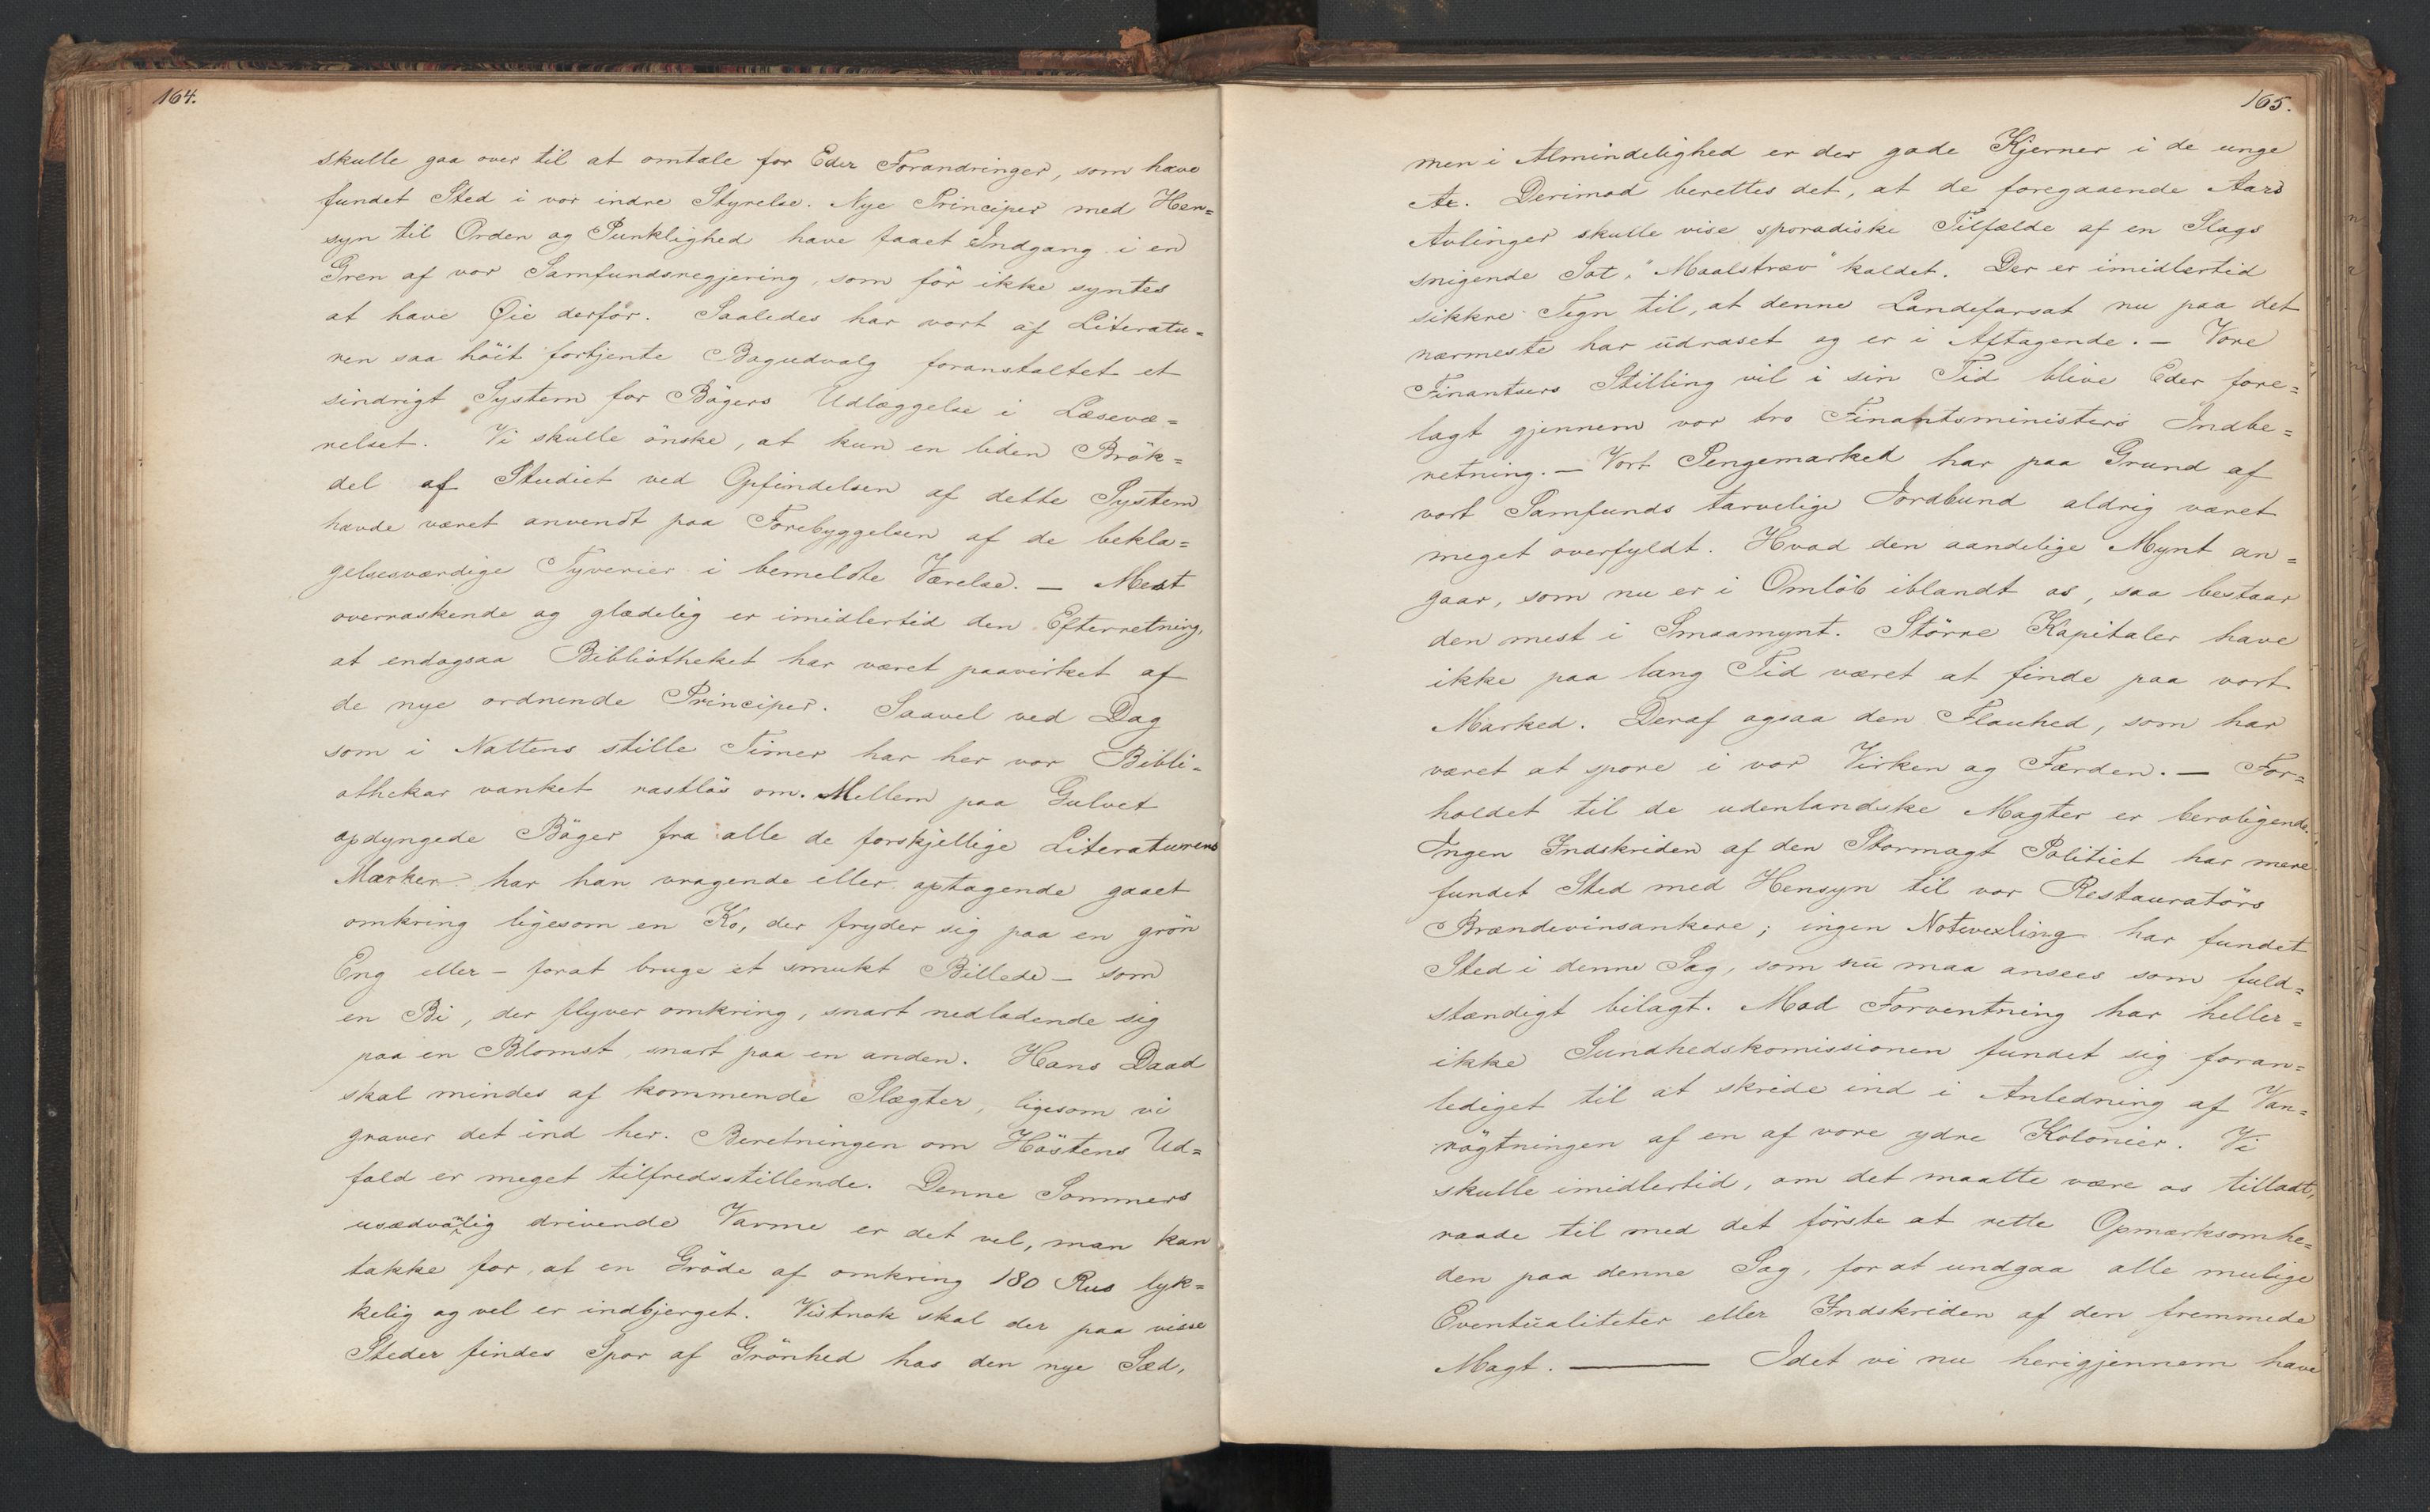 164.
skulle gaa over til at omtale for Eder Forandringer, som have
fundet Sted i vor indre Styrelse. Nye Principer med Hen=
syn til Orden og Punklighed have faaet Indgang i en
Gren af vor Samfundsregjering, som för ikke syntes
at have Øie derför. Saaledes har vort af Literatu=
ren saa höit fortjente Bogudvalg foranstaltet et
sindrigt System for Bögers Udlæggelse i Læsevæ=
relset. Vi skulle önske, at kun en liden Brök=
del af Studiet ved Opfindelsen af dette System
havde været anvendt paa Forebyggelsen af de bekla=
gelsesværdige Tyverier i bemeldte Værelse. — Mest
overraskende og glædelig er imidlertid den Efterretning,
at endogsaa Bibliotheket har været paavirket af
de nye ordnende Principer. Saavel ved Dag
som i Nattens stille Timer har her vor Bibli=
othekar vanket rastlös om. Mellem paa Gulvet
opdyngede Böger fra alle de forskjellige Literaturens
Marker har han vragende eller optagende gaaet
omkring ligesom en Ko, der fryder sig paa en grön
Eng eller – forat bruge et smukt Billede – som
en Bi, der flyver omkring, snart nedladende sig
paa en Blomst, snart paa en anden. Hans Daad
skal mindes af kommende Slægter, ligesom vi
graver det ind her. Beretningen om Höstens Ud=
fald er meget tilfredsstillende. Denne Sommers
usædvanlig drivende Varme er det vel, man kan
takke for, at en Gröde af omkring 180 Rus lyk=
kelig og vel er indbjerget. Vistnok skal der paa visse
Steder findes Spor af Grönhed hos den nye Sæd,
165.
men i Almindelighed er der gode Kjerner i de unge
Ax. Derimod berettes det, at de foregaaende Aars
Avlinger skulle vise sporadiske Tilfælde af en Slags
snigende Sot, "Maalstræv" kaldet. Der er imidlertid
sikkre Tegn til, at denne Landefarsot nu paa det
nærmeste har udraset og er i Aftagende. — Vore
Finantsers Stilling vil i sin Tid blive Eder fore=
lagt gjennem vor tro Finantsministers Indbe=
retning. — Vort Pengemarked har paa Grund af
vort Samfunds tarvelige Jordbund aldrig været
meget overfyldt. Hvad den aandelige Mynt an=
gaar, som nu er i Omlöb iblandt os, saa bestaar
den mest i Smaamynt. Större Kapitaler have
ikke paa lang Tid været at finde paa vort
Marked. Deraf ogsaa den Flauhed, som har
været at spore i vor Virken og Færden. — For=
holdet til de udenlandske Magter er beroligende.
Ingen Indskriden af den Stormagt Politiet har mere
fundet Sted med Hensyn til vor Restauratörs
Brændevinsankere; ingen Notevexling har fundet
Sted i denne Sag, som nu maa ansees som fuld=
stændigt bilagt. Mod Forventning har heller=
ikke Sundhedskomissionen fundet sig foran=
lediget til at skride ind i Anledning af Van=
rögtningen af en af vore ydre Kolonier. Vi
skulle imidlertid, om det maatte være os tilladt,
raade til med det förste at rette Opmærksomhe=
den paa denne Sag, for at undgaa alle mulige
Eventualiteter eller Indskriden af den fremmede
Magt. ——— Idet vi nu herigjennem have